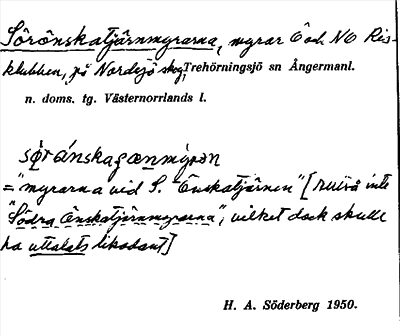 Sörönskatjärnmyrarna, myrar Ö och NO Ris-
klubben, på Nordsjö skog, Trehörningsjö sn Ångermanl.
n. doms. tg. Västernorrlands l.
="myrarna vid S. Önskatjärnen" [ inte
"Södra Önskatjärnmyrarna", vilket dock skulle
ha uttalats likadant]
H. A. Söderberg 1950.